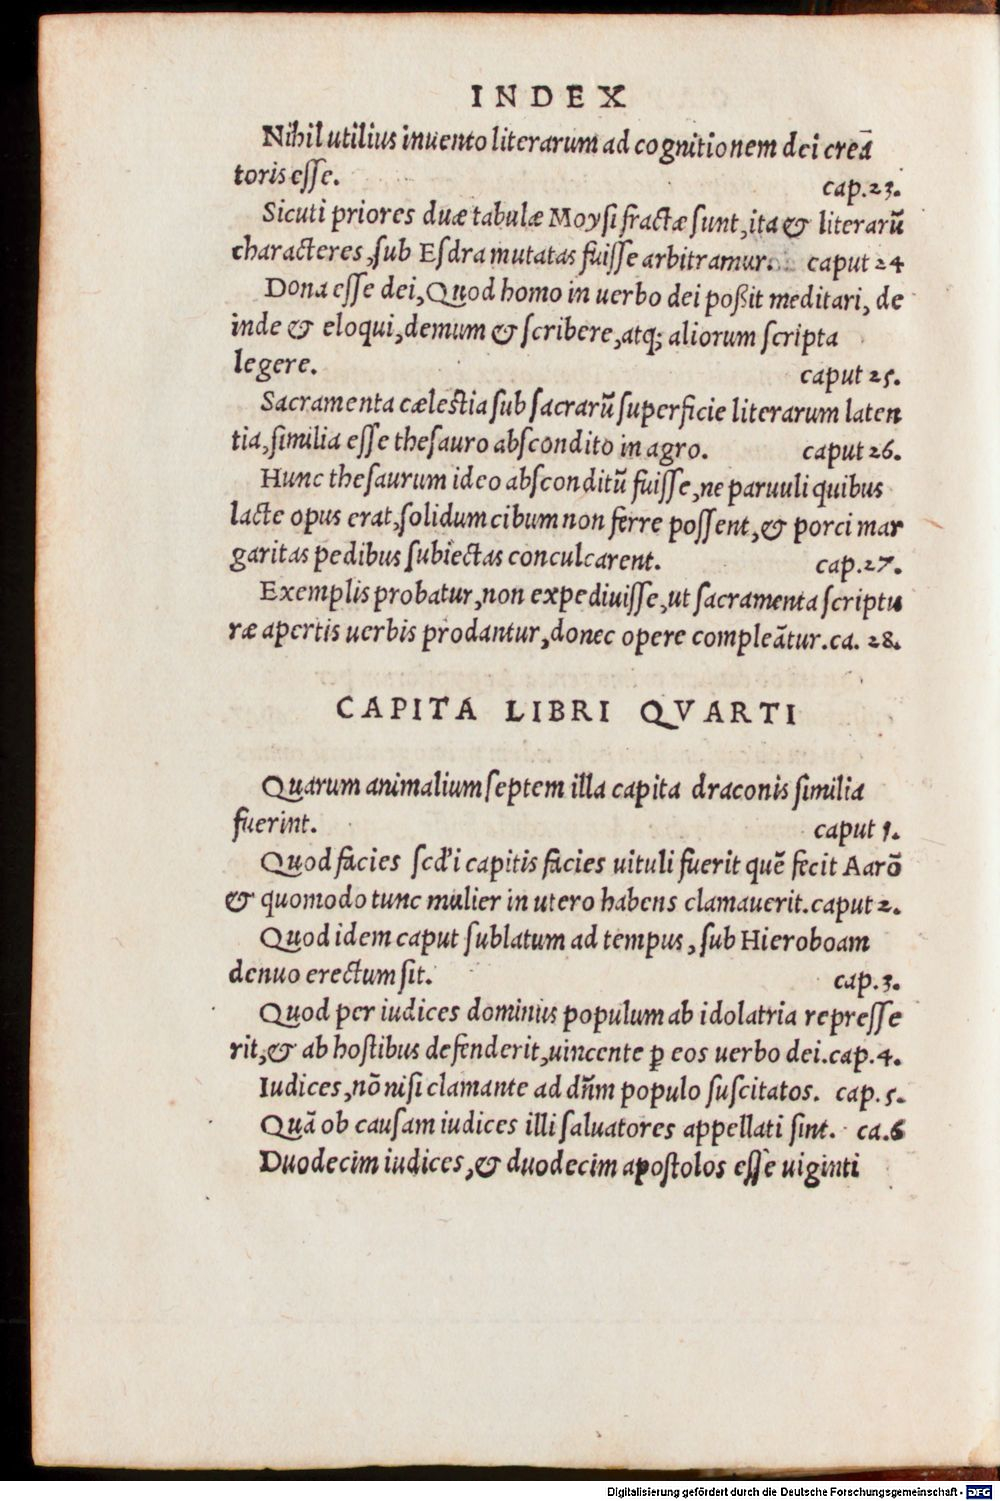 INDEX
Nihil utilius inuento literarum ad cognitionem dei creā
toris eſſe. cap.23.
Sicuti priores duæ tabulæ Moyſi fractæ ſunt, ita & literarū
characteres, ſub Eſdra mutatas fuiſſe arbitramur. caput 24
Dona eſſe dei, Quod homo in uerbo dei poßit meditari, de
inde & eloqui, demum & ſcribere, atq; aliorum ſcripta
legere. caput 25.
Sacramenta cæleſtia ſub ſacrarū ſuperficie literarum laten
tia, ſimilia eſſe theſauro abſcondito in agro. caput 26.
Hunc theſaurum ideo abſconditū fuiſſe, ne paruuli quibus
lacte opus erat, ſolidum cibum non ferre poſſent, & porci mar
garitas pedibus ſubiectas conculcarent. cap.27.
Exemplis probatur, non expediuiſſe, ut ſacramenta ſcriptu
ræ apertis uerbis prodantur, donec opere compleātur. ca. 28.
CAPITA LIBRI QVARTI
Quarum animalium ſeptem illa capita draconis ſimilia
fuerint. caput 1.
Quod facies ſcd'i capitis facies uituli fuerit quē fecit Aarō
& quomodo tunc mulier in utero habens clamauerit. caput 2.
Quod idem caput ſublatum ad tempus, ſub Hieroboam
denuo erectum ſit. cap.3.
Quod per iudices dominus populum ab idolatria repreſſe
rit, & ab hoſtibus defenderit, uincente ꝑ eos uerbo dei. cap.4.
Iudices, nō niſi clamante ad dn̄m populo ſuſcitatos. cap.5.
Quā ob cauſam iudices illi ſaluatores appellati ſint. ca.6
Duodecim iudices, & duodecim apoſtolos eſſe uiginti
Digitalisierung gefördert durch die Deutsche Forschungsgemeinschaft - DFG